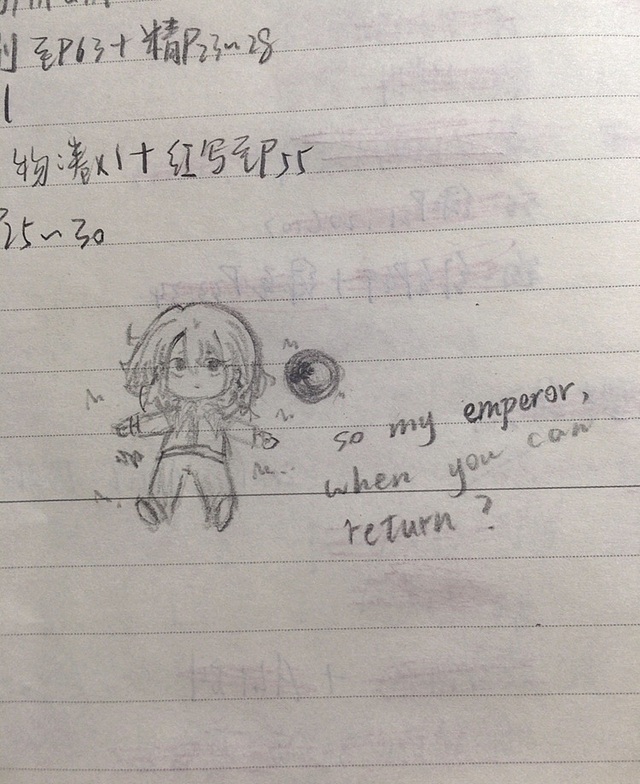 至P63+精P23~28
1
物潜x1+红写至P55
25~30
so my emperor,
when you can
return?